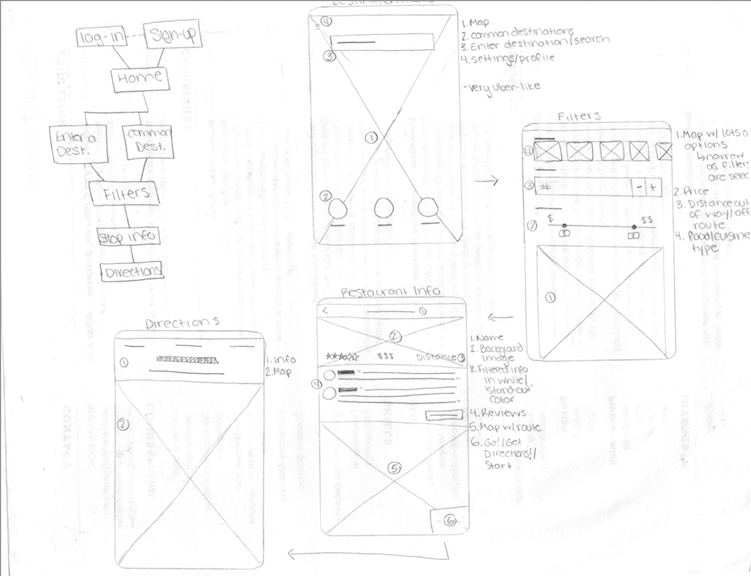 log-in
Sign-up
Home
Enter a
Dest.
common
Dest.
Filters
Stop info
Directions
4
3
1
2
1. Map
2. common destinations
3. Enter destination/search
4. settings/profile
-very uber-like
Filters
4
3
#
- +
2
$ $$
1
1. Map w/ lots o
options
↳ narrow
as filters
are selec
2. Price
3. Distance out
of way/off
route
4. Food/cuisine
type
Restaurant Info
<
1
2
$$$
Distance 3
4
5
6
1. Name
2. Background
image
3. Filtered info
in white/
stand out
color
4. Reviews
5. Map w/route
6. Go!/Get
Directions!/
Start
Directions
1
2
1. info
2. Map